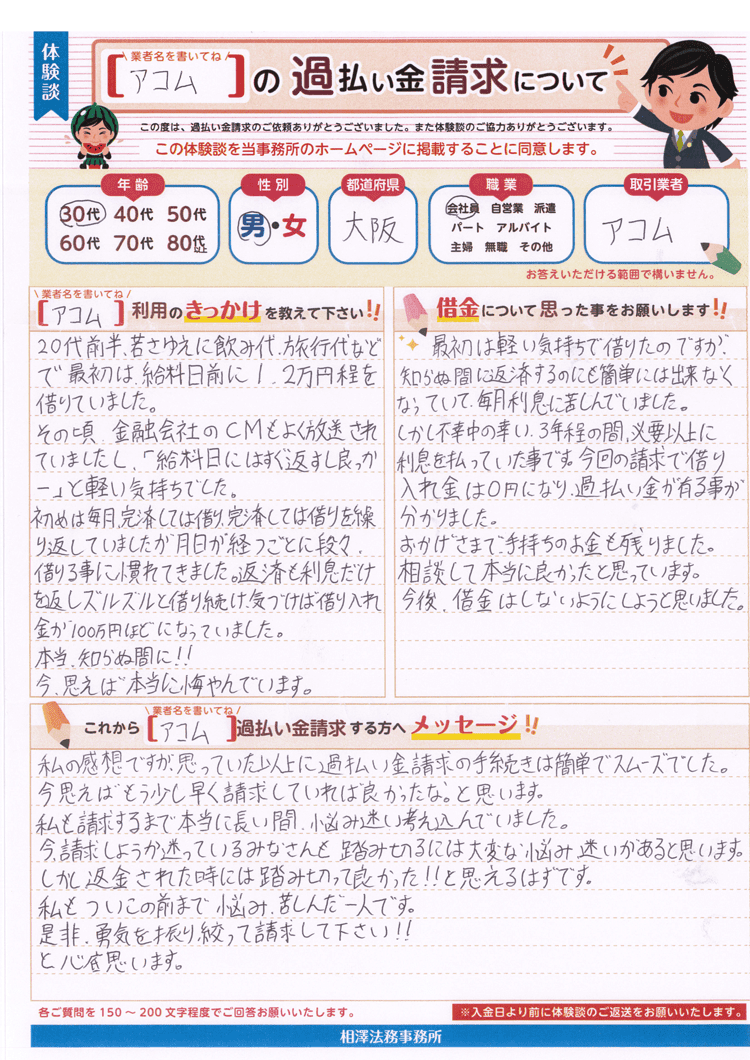 体験談
業者名を書いてね
[アコム]の過払い金請求について
この度は、過払い金請求のご依頼ありがとうございました。また体験談のご協力ありがとうございます。
この体験談を当事務所のホームページに掲載することに同意します。
年齢
30代 40代 50代
60代 70代 80代以上
性別
男・女
都道府県
大阪
職業
会社員 自営業 派遣
パート アルバイト
主婦 無職 その他
取引業者
アコム
お答えいただける範囲で構いません。
業者名を書いてね
[アコム]利用のきっかけを教えて下さい!!
20代前半、若さゆえに飲み代、旅行代など
で最初は、給料日前に1、2万円程を
借りていました。
その頃、金融会社のCMもよく放送され
ていましたし、「給料日にはすぐ返すし良っか
ー」と軽い気持ちでした。
初めは毎月、完済しては借り、完済しては借りを繰
り返していましたが月日が経つごとに段々、
借りる事に慣れてきました。返済も利息だけ
を返しズルズルと借り続け、気づけば借り入れ
金が100万円ほどになっていました。
本当、知らぬ間に!!
今、思えば本当に悔やんでいます。
借金について思った事をお願いします!!
最初は軽い気持ちで借りたのですが、
知らぬ間に返済するのにも簡単には出来なく
なっていて、毎月利息に苦しんでいました。
しかし不幸中の幸い、3年程の間、必要以上に
利息を払っていた事です。今回の請求で借り
入れ金は0円になり、過払い金が有る事が
分かりました。
おかげさまで、手持ちのお金も残りました。
相談して本当に良かったと思っています。
今後、借金はしないようにしようと思いました。
業者名を書いてね
これから[アコム]過払い金請求する方へメッセージ!!
私の感想ですが、思っていた以上に過払い金請求の手続きは簡単でスムーズでした。
今思えばもう少し早く請求していれば良かったな。と思います。
私も請求するまで本当に長い間、悩み迷い考え込んでいました。
今、請求しようか迷っているみなさんも踏み切るには大変な悩み、迷いがあると思います。
しかし返金された時には踏み切って良かった!!と思えるはずです。
私もついこの前まで悩み、苦しんだ一人です。
是非、勇気を振り絞って請求して下さい!!
と心を思います。
各ご質問を150～200文字程度でご回答お願いいたします。
※入金日より前に体験談のご返送をお願いいたします。
相澤法務事務所